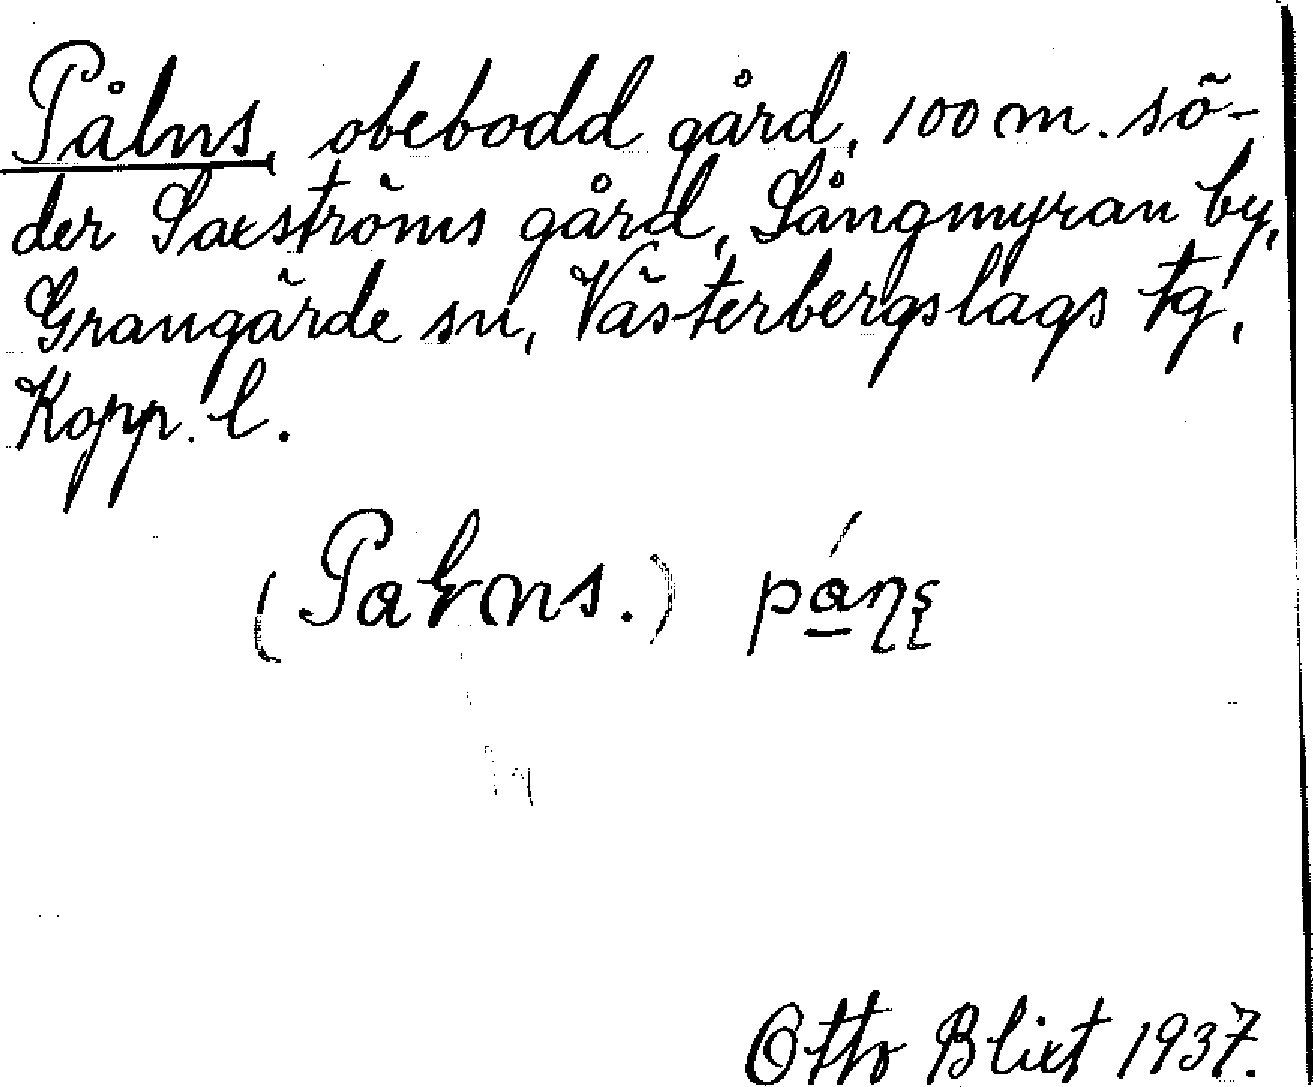 Pålns, obebodd gård, 100 m. sö-
der Saxströms gård, Sångmyran by,
Grangärde sn, Västerbergslags tg,
Kopp. l.
(Palns.)
Otto Blixt 1937.